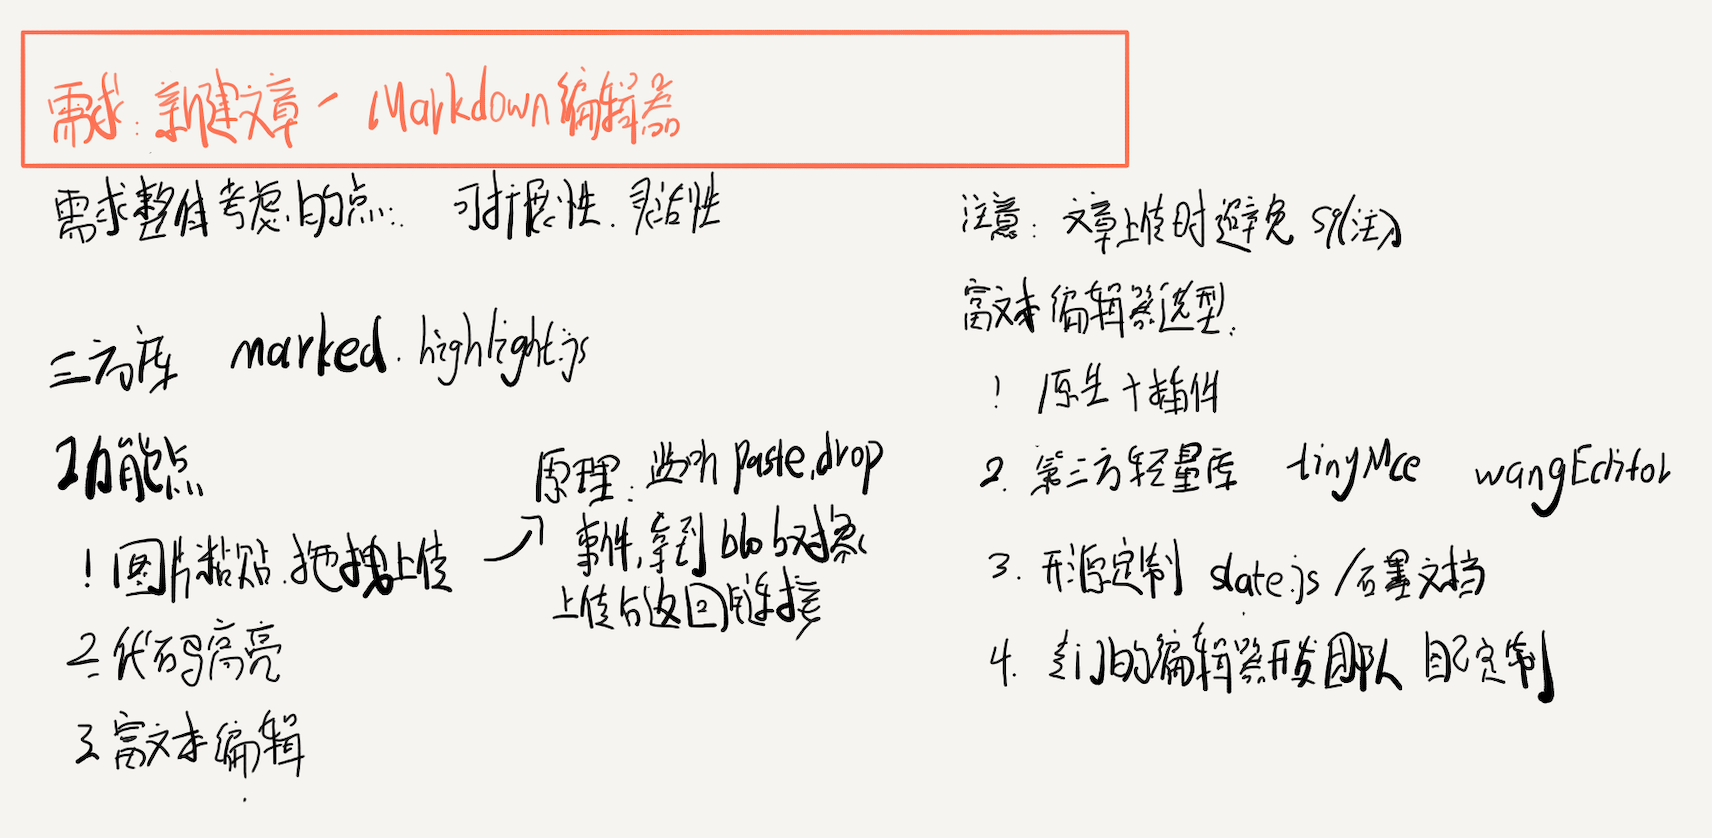 需求：新建文章 - Markdown编辑器
需求整体考虑的点： 可扩展性、灵活性
三方库 marked、highlight.js
功能点
1 图片粘贴、拖拽上传
原理：监听 paste,drop
事件,拿到blob对象
上传后返回链接
2 代码高亮
3 富文本编辑
注意：文章上传时避免 sql注入
富文本编辑器选型：
1 原生+插件
2. 第三方轻量库 tinyMce wangEditor
3. 开源定制 slate.js / 石墨文档
4. 专门的编辑器开发团队 自己定制